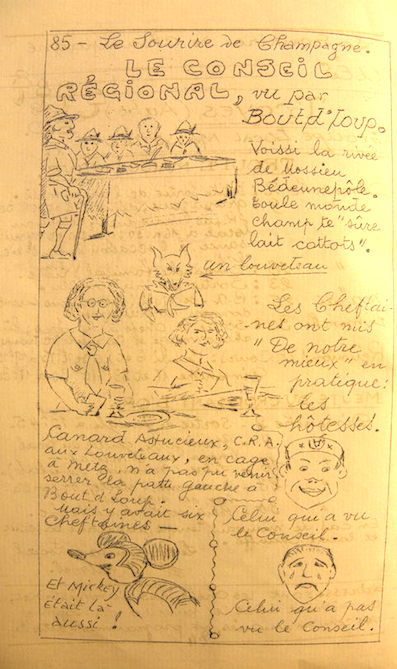 85 - Le Sourire de Champagne.
LE CONSEIL
RÉGIONAL, vu par
Bout d'Loup.
Voissi la rivée
de Mossieu
Bédeunepôle.
toule monde
champ te "sûre
lait cottots".
un louveteau
Les Cheftai-
nes ont mis
"De notre
mieux" en
pratique:
les
hôtesses.
Canard Astucieux, C.R.A.
aux Louveteaux, en cage
à Metz, n'a pas pu venir
serrer la patte gauche à
Bout d'Loup.
Mais y avait six
cheftaines -
Celui qui a vu
le Conseil.
Et Mickey
était là
aussi !
Celui qu'a pas
vu le Conseil.